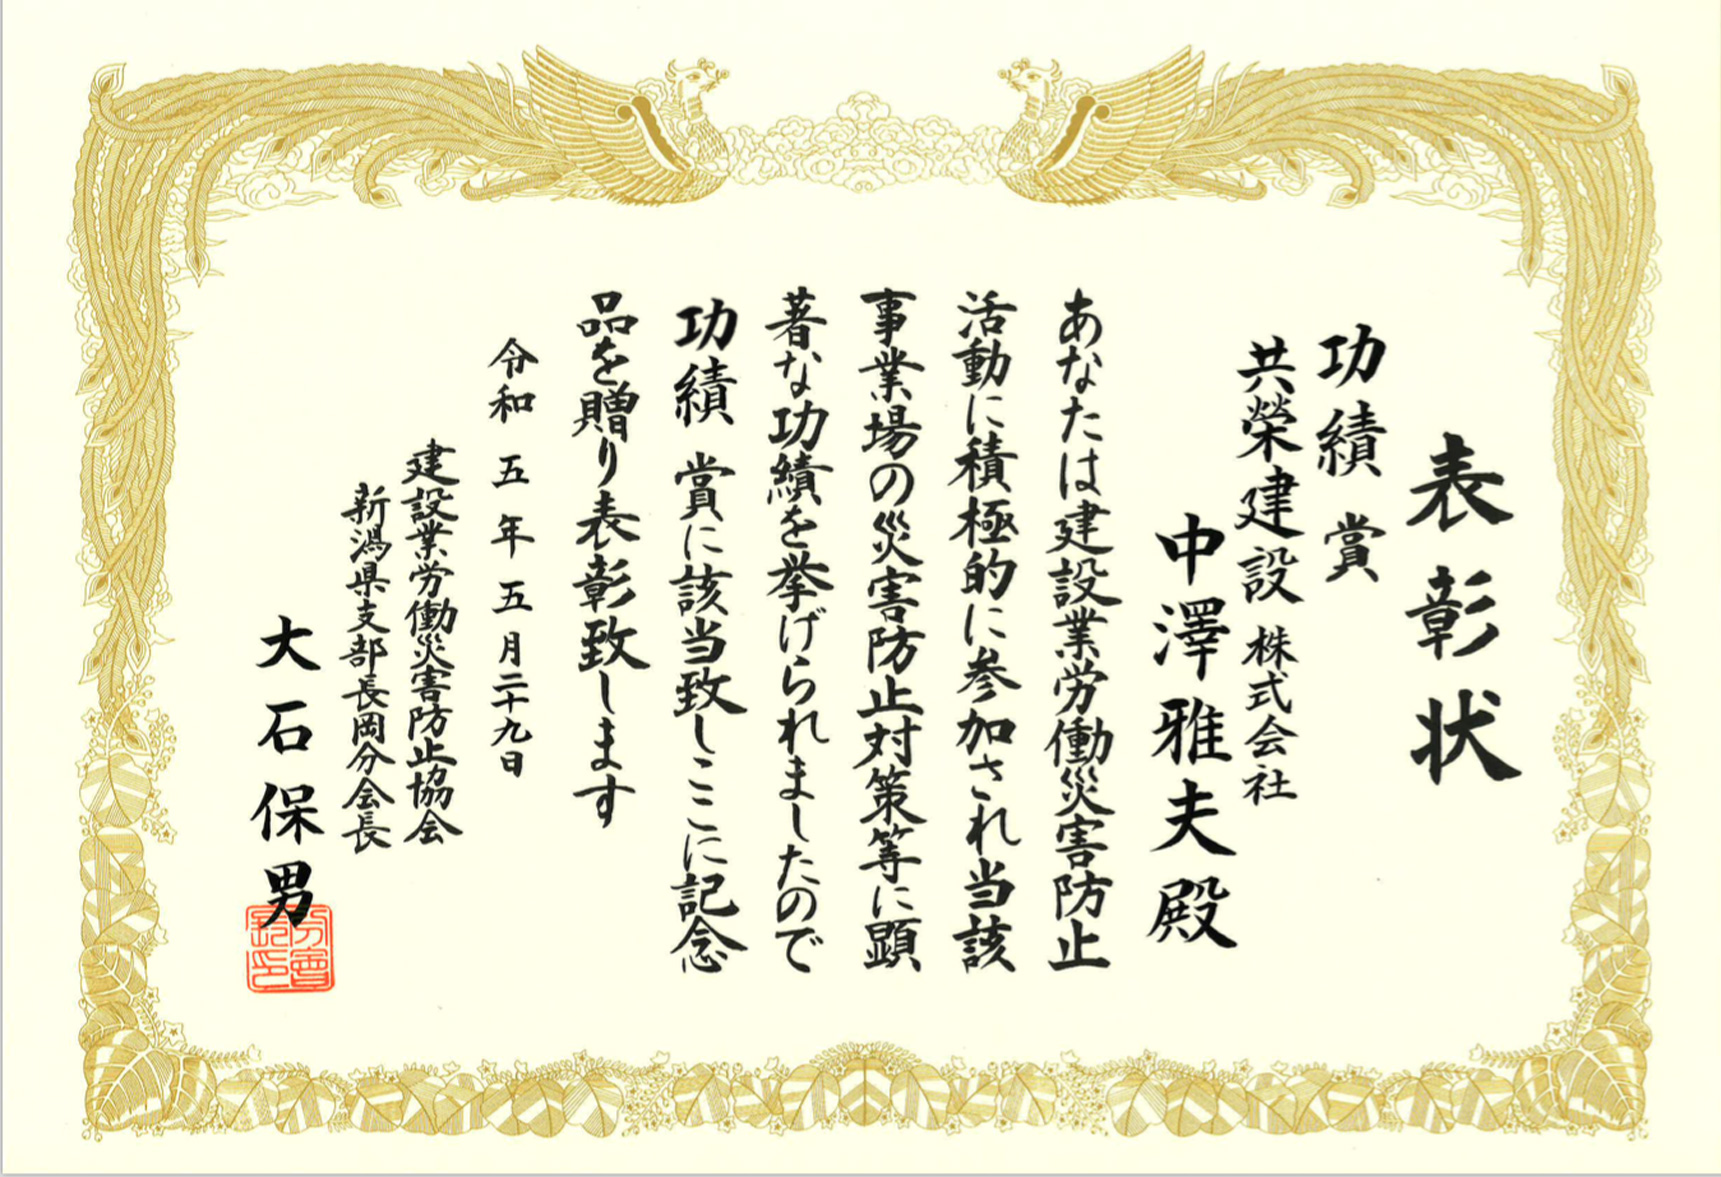 表彰状
功績 賞
共榮建設 株式会社
中澤雅夫殿
あなたは建設業労働災害防止
活動に積極的に参加され当該
事業場の災害防止対策等に顕
著な功績を挙げられましたので
功績 賞に該当致しここに記念
品を贈り表彰致します
令和 五 年 五 月二十九日
建設業労働災害防止協会
新潟県支部長岡分会長
大石保男
分會
長印